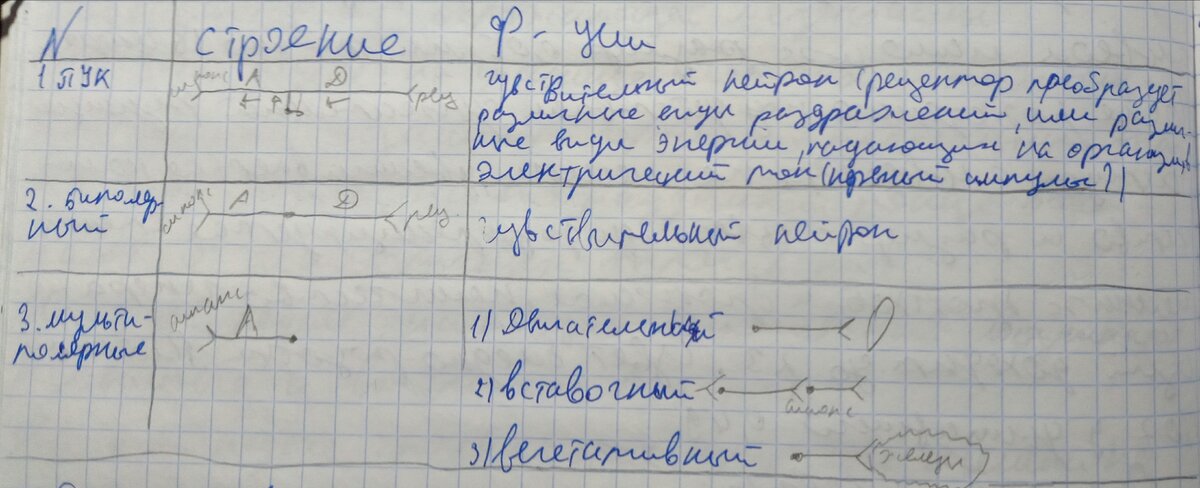 N строение Ф-ции
1 ПУК
синапс А Д рец
Ц
чувствительный нейрон (рецептор преобразует
различные виды раздражений, или различ-
ные виды энергии, падающих на организм
электрический ток (нервный импульс?)
2. Биполяр-
ный
синапс А Д рец
чувствительный нейрон
3. мульти-
полярные
синапс А
1) Двигательный
2) вставочный
синапс
3) вегетативный
железы